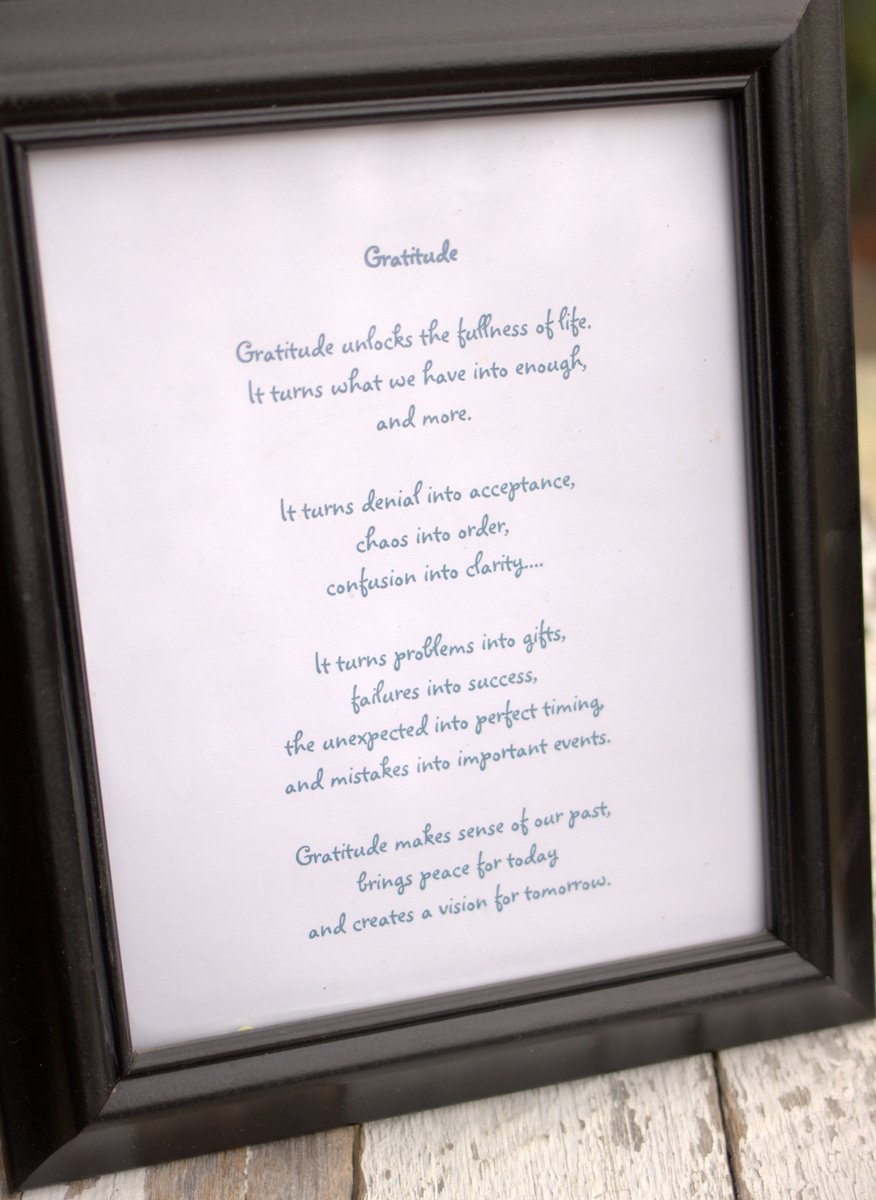 Gratitude
Gratitude unlocks the fullness of life.
It turns what we have into enough,
and more.
It turns denial into acceptance,
chaos into order,
confusion into clarity....
It turns problems into gifts,
failures into success,
the unexpected into perfect timing,
and mistakes into important events.
Gratitude makes sense of our past,
brings peace for today
and creates a vision for tomorrow.